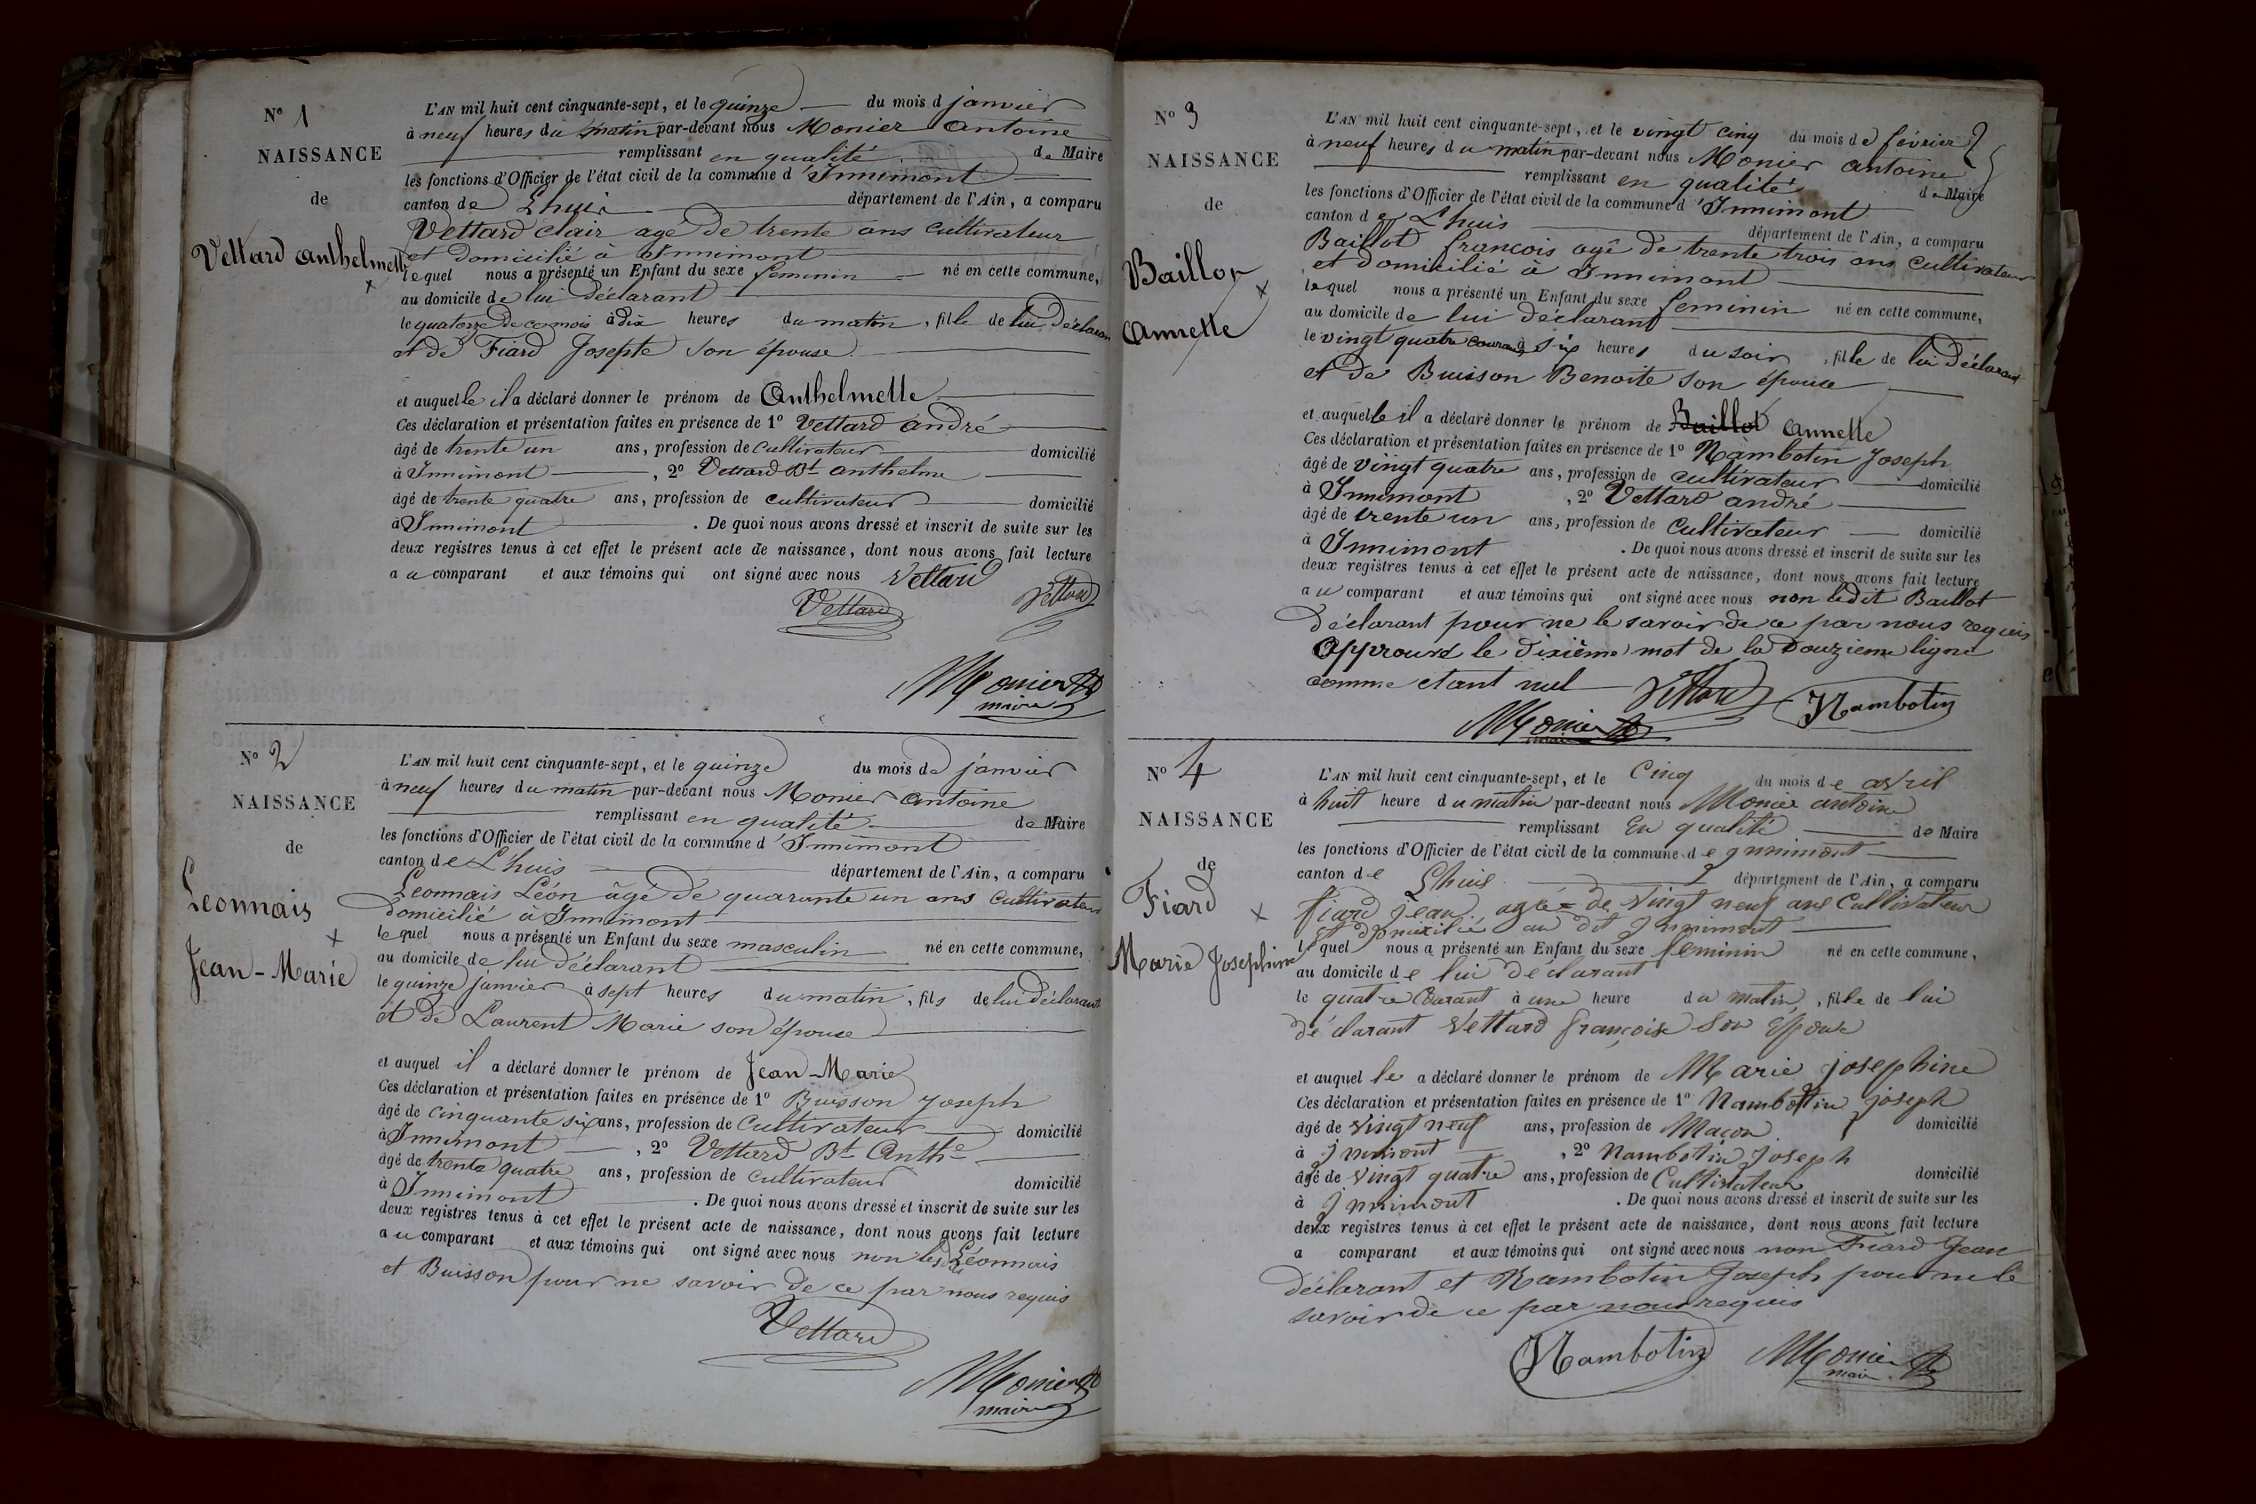 N° 1
NAISSANCE
de
Vettard Anthelmette
L'AN mil huit cent cinquante-sept, et le quinze du mois d janvier
à neuf heures du matin par-devant nous Monier Antoine
remplissant en qualité de Maire
les fonctions d'Officier de l'état civil de la commune d'Innimont
canton de Lhuis département de l'Ain, a comparu
Vettard Clair age de trente ans cultivateur
et domicilié à Innimont
lequel nous a présenté un Enfant du sexe feminin né en cette commune,
au domicile de lui déclarant
le quatorze de ce mois à dix heures du matin, fille de lui déclarant
et de Fiard Josepte son épouse
et auquelle il a déclaré donner le prénom de Anthelmette
Ces déclaration et présentation faites en présence de 1° Vettard André
âgé de trente un ans, profession de cultivateur domicilié
à Innimont, 2° Vettard Bt Anthelme
âgé de trente quatre ans, profession de cultivateur domicilié
à Innimont. De quoi nous avons dressé et inscrit de suite sur les
deux registres tenus à cet effet le présent acte de naissance, dont nous avons fait lecture
au comparant et aux témoins qui ont signé avec nous Vettard
Vettard Vettard
Monier
maire
N° 2
NAISSANCE
de
Leonnais
Jean-Marie
L'AN mil huit cent cinquante-sept, et le quinze du mois de janvier
à neuf heures du matin par-devant nous Monier Antoine
remplissant en qualité de Maire
les fonctions d'Officier de l'état civil de la commune d'Innimont
canton de Lhuis département de l'Ain, a comparu
Leonnais Léon âgé de quarante un ans cultivateur
domicilié à Innimont
lequel nous a présenté un Enfant du sexe masculin né en cette commune,
au domicile de lui déclarant
le quinze janvier à sept heures du matin, fils de lui déclarant
et de Laurent Marie son épouse
et auquel il a déclaré donner le prénom de Jean-Marie
Ces déclaration et présentation faites en présence de 1° Buisson Joseph
âgé de cinquante six ans, profession de cultivateur domicilié
à Innimont, 2° Vettard Bt Anthe
âgé de trente quatre ans, profession de cultivateur domicilié
à Innimont. De quoi nous avons dressé et inscrit de suite sur les
deux registres tenus à cet effet le présent acte de naissance, dont nous avons fait lecture
au comparant et aux témoins qui ont signé avec nous non les Léonnais
et Buisson pour ne savoir de ce par nous requis
Vettard
Monier
maire
N° 3
NAISSANCE
de
Baillot
Annette
L'AN mil huit cent cinquante-sept, et le vingt cinq du mois de février
à neuf heures du matin par-devant nous Monier Antoine
remplissant en qualité de Maire
les fonctions d'Officier de l'état civil de la commune d'Innimont
canton de Lhuis département de l'Ain, a comparu
Baillot François agé de trente trois ans cultivateur
et domicilié à Innimont
lequel nous a présenté un Enfant du sexe feminin né en cette commune,
au domicile de lui déclarant
le vingt quatre courant à six heures du soir, fille de lui déclarant
et de Buisson Benoite son épouse
et auquelle il a déclaré donner le prénom de Baillot Annette
Ces déclaration et présentation faites en présence de 1° Nambotin Joseph
âgé de vingt quatre ans, profession de cultivateur domicilié
à Innimont, 2° Vettard André
âgé de trente un ans, profession de cultivateur domicilié
à Innimont. De quoi nous avons dressé et inscrit de suite sur les
deux registres tenus à cet effet le présent acte de naissance, dont nous avons fait lecture
au comparant et aux témoins qui ont signé avec nous non ledit Baillot
déclarant pour ne le savoir de ce par nous requis
Approuvé le dixième mot de la douzieme ligne
comme etant nul Vettard Nambotin
Monier
maire
N° 4
NAISSANCE
de
Fiard
Marie Josephine
L'AN mil huit cent cinquante-sept, et le cinq du mois de avril
à huit heure du matin par-devant nous Monier antoine
remplissant en qualité de Maire
les fonctions d'Officier de l'état civil de la commune de innimont
canton de Lhuis département de l'Ain, a comparu
fiard jean agée de vingt neuf ans Cultivateur
et domicilié au dit innimont
lequel nous a présenté un Enfant du sexe feminin né en cette commune,
au domicile de lui déclarant
le quatre Courant à une heure du matin, fille de lui
déclarant Vettard françoise Son Epouse
et auquel le a déclaré donner le prénom de Marie josephine
Ces déclaration et présentation faites en présence de 1° Nambottin joseph
âgé de vingt neuf ans, profession de Maçon domicilié
à innimont, 2° Nambotin Joseph
âgé de vingt quatre ans, profession de Cultivateur domicilié
à innimont. De quoi nous avons dressé et inscrit de suite sur les
deux registres tenus à cet effet le présent acte de naissance, dont nous avons fait lecture
a comparant et aux témoins qui ont signé avec nous non Fiard Jean
déclarant et Nambotin Joseph pour ne le
savoir de ce par nous requis
Nambotin Monier
maire